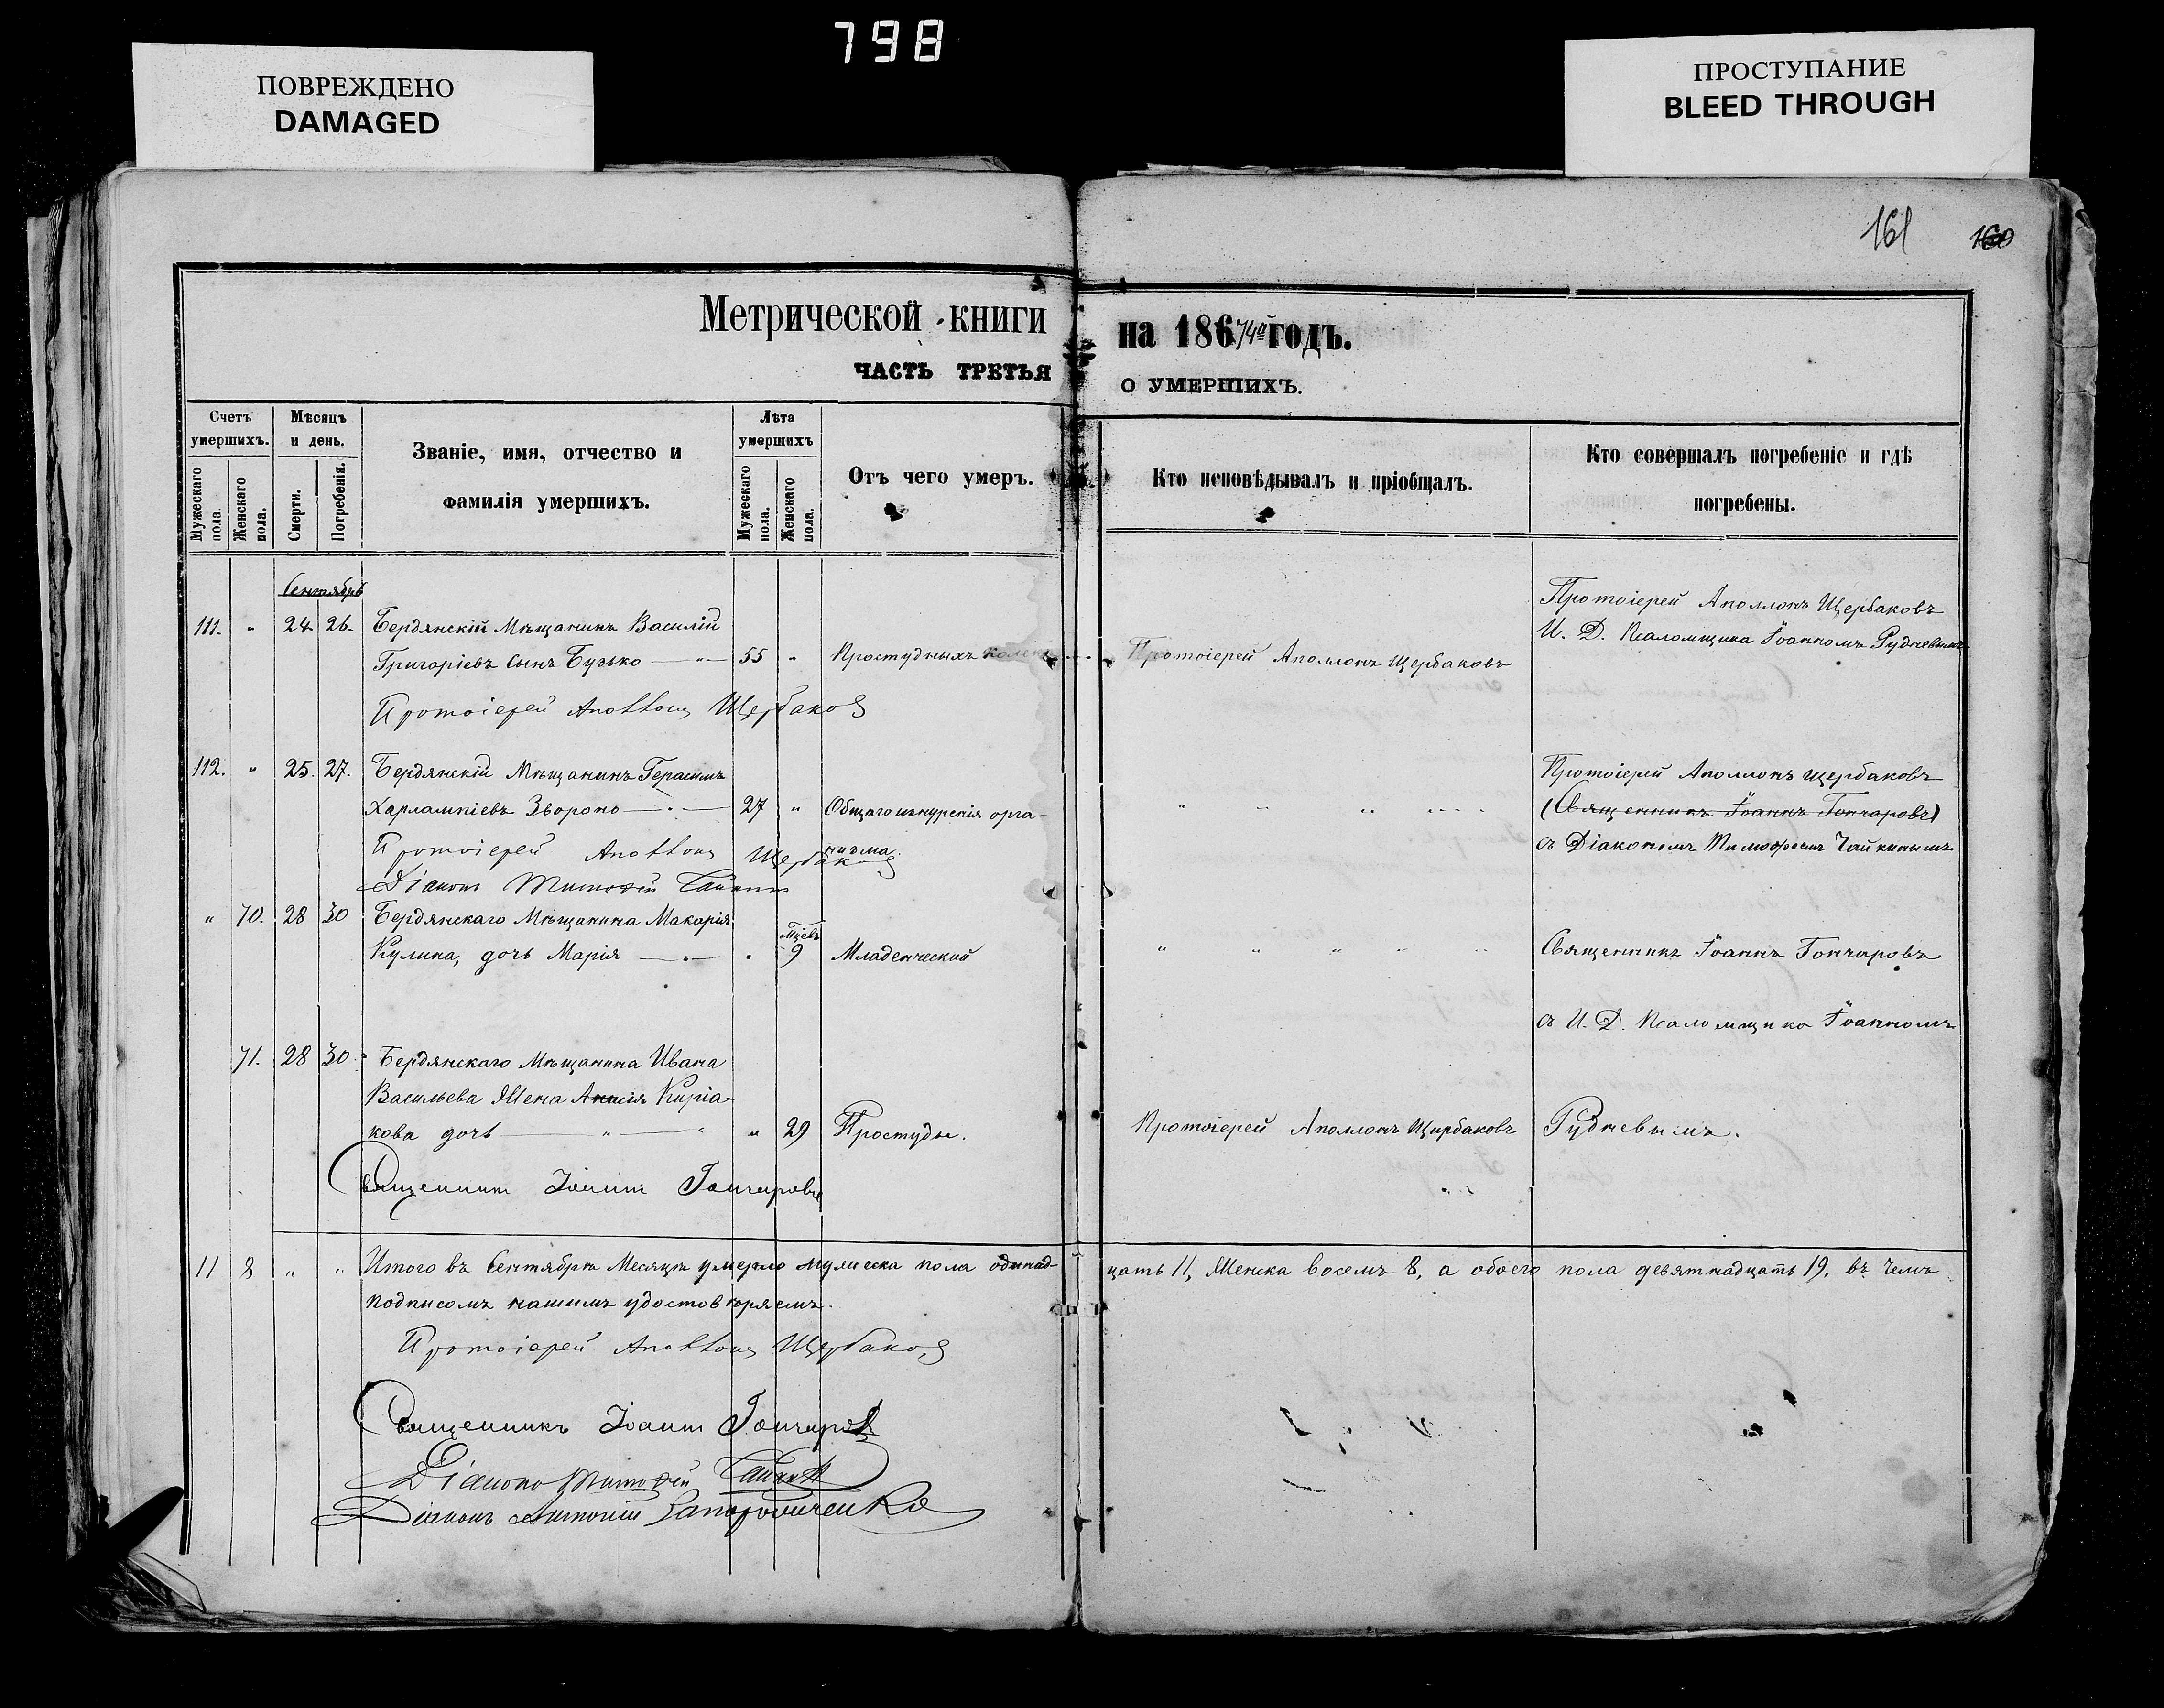 798
ПОВРЕЖДЕНО
DAMAGED
ПРОСТУПАНИЕ
BLEED THROUGH
161 160
Метрической книги на 186/74й годъ.
ЧАСТЬ ТРЕТЬЯ О УМЕРШИХЪ.
Счетъ умершихъ.
Мужескаго пола.
Женскаго пола.
Мѣсяцъ и день.
Смерти.
Погребенія.
Званіе, имя, отчество и
фамилія умершихъ.
Лѣта умершихъ
Мужескаго пола.
Женскаго пола.
Отъ чего умеръ.
Кто исповѣдывалъ и пріобщалъ.
Кто совершалъ погребеніе и гдѣ
погребены.
Сентябрь
111. " 24. 26. Бердянскій Мѣщанинъ Василій
Григоріевъ сынъ Бузько — " — 55 " Простудныхъ
Протоіерей Аполлонъ Щербаковъ
Протоіерей Аполлонъ Щербаковъ
И. Д. Псаломщика Іоанномъ Рудневымъ
Протоіерей Аполлонъ Щербаковъ
112. " 25. 27. Бердянскій Мѣщанинъ Герасимъ
Харлампіевъ Звороно — " — 27 " Общаго изнуренія орга-
низма.
" " " "
Протоіерей Аполлонъ Щербаковъ
(Священникъ Іоаннъ Гончаровъ)
съ Діакономъ Тимофеемъ Чайкинымъ
Протоіерей Аполлонъ Щербаковъ
Діаконъ Тимофей Чайкинъ
" 70. 28 30 Бердянскаго Мѣщанина Макарія
Кулика, дочь Марія — " — " Мцевъ 9 Младенческой
" " " " "
Священникъ Іоаннъ Гончаровъ
съ И. Д. Псаломщика Іоанномъ
71. 28 30 Бердянскаго Мѣщанина Ивана
Васильева Жена Анисія Киріа-
кова дочь — " — " " 29 Простуды.
Протоіерей Аполлонъ Щербаковъ
Рудневымъ.
Священникъ Іоаннъ Гончаровъ
11 8 " " Итого въ Сентябрѣ Месяцѣ умерло мужеска пола одинад-цать 11, Женска восемъ 8, а обоего пола девятнадцать 19, въ чемъ
подписомъ нашимъ удостовѣряемъ.
Протоіерей Аполлонъ Щербаковъ
Священникъ Іоаннъ Гончаровъ
Діаконъ Тимофей Чайкинъ
Діаконъ Антоній